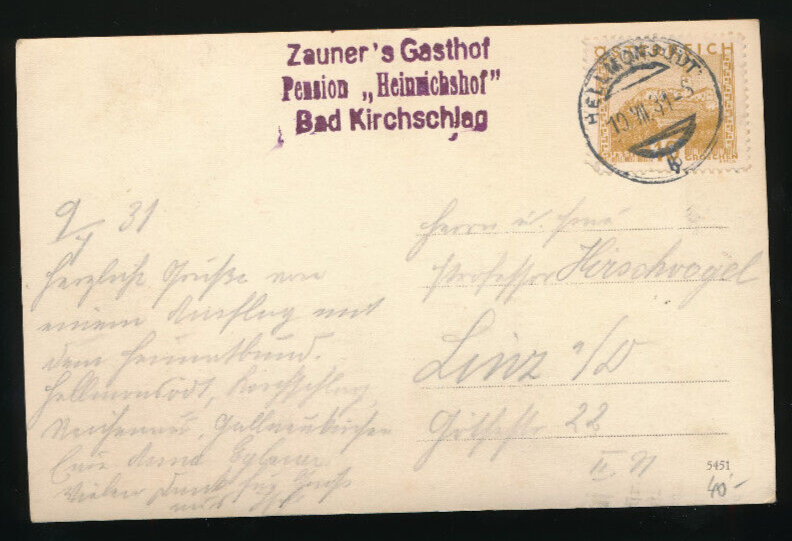 Zauner's Gasthof
Pension „Heinrichshof"
Bad Kirchschlag
ÖSTERREICH
HELLMONSÖDT
10 GROSCHEN
9/ 31
Herzliche Grüße von
einem Ausflug mit
dem Heimatbund.
Hellmonsödt, Kirchschlag,
Gallneukirchen
Vielen Dank für
Herrn u. Frau
Professor Hirschvogel
Linz a/D
22
5451
40.-